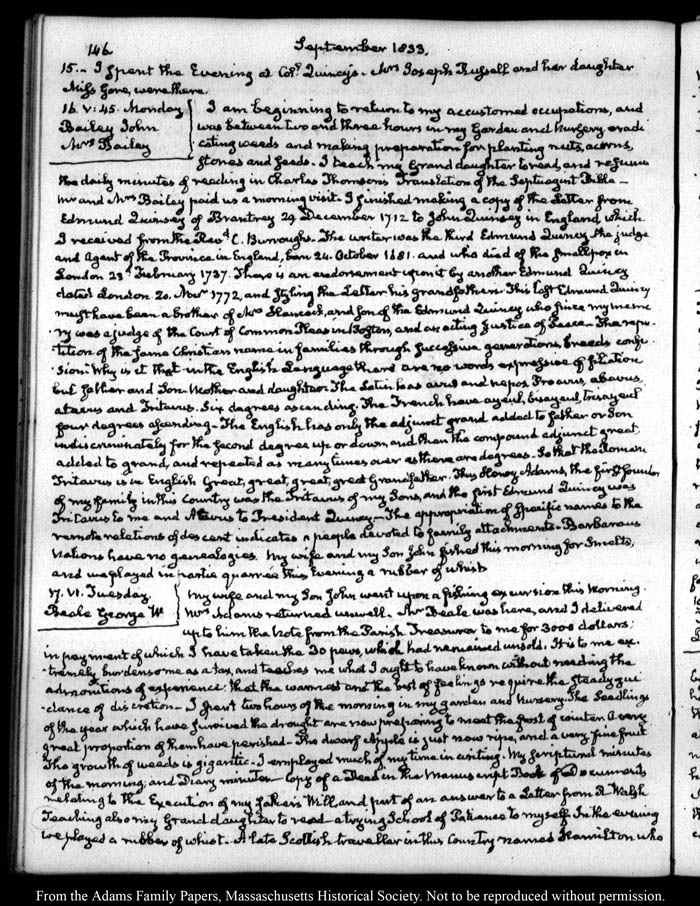 146.
September 1833.
15.- I spent the Evening at Col. Quincy's. Mrs Joseph Russell and her daughter
Miss Gore, were there.
16. V:45. Monday
Bailey John
Mrs Bailey
I am beginning to return to my accustomed occupations, and
was between two and three hours in my Garden and Nursery, eradi-
cating weeds and making preparation for planting nuts, acorns,
stones and seeds. I teach my Grand daughter to read, and resume
the daily minutes of reading in Charles Thomson's Translation of the Septuagint Bible-
Mr and Mrs Bailey paid us a morning visit. I finished making a copy of the Letter from
Edmund Quinsey of Brantrey 29 December 1712 to John Quinsey in England, which
I received from the Revd C. Burroughs. The writer was the third Edmund Quincy, the judge
and Agent of the Province in England, born 24. October 1681. and who died of the Smallpox in
London 23d February 1737. There is an endorsement upon it by another Edmund Quincy
dated London. 20. Novr 1772, and styling the Letter his grandfather's. This last Edmund Quincy
must have been a brother of Mrs Hancock, and son of the Edmund Quincy who since my memo
ry was a judge of the Court of Common Pleas in Boston, and an acting Justice of Peace. The repe-
tition of the same Christian name in families through successive generations, breeds confu
sion. Why is it that in the English Language there are no words expressive of filiation
but father and Son. Mother and daughter. The Latin has avus and nepos, Proavus, abavus,
atavus and Tritavus. Six degrees ascending. The French have ayeul, bisayeul, trisayeul
four degrees ascending- The English has only the adjunct grand added to father or Son
indiscriminately for the second degree up or down, and then the compound adjunct great
added to grand, and repeated as many times over as there are degrees. So that the Roman
Tritavus is in English Great, great, great, great Grandfather. Thus Henry Adams, the first founder
of my family in this Country was the Tritavus of my Sons, and the first Edmund Quincy was
Tritavus to me and Atavus to President Quincy- The appropriation of specific names to the
remote relations of descent indicates a people devoted to family attachments- Barbarous
Nations have no genealogies. My wife and my Son John fished this morning for Smelts,
and we played in partie quarrée this Evening a rubber of whist
17. VI. Tuesday.
Beale George W
My wife and my Son John went upon a fishing excursion this Morning.
Mrs Adams returned unwell. Mr Beale was here, and I delivered
up to him the Note from the Parish Treasurer to me for 3000 dollars;
in payment of which I have taken the 30 pews, which had remained unsold. It is to me ex-
tremely burdensome as a tax, and teaches me what I ought to have known without needing the
admonitions of experience. that the warmest and the best of feelings require the steady gui-
dance of discretion- I spent two hours of the morning in my garden and Nursery. The Seedlings
of the year which have survived the drought are now preparing to meet the frost of winter. A very
great proportion of them have perished- The dwarf Apple is just now ripe, and a very fine fruit
The growth of weeds is gigantic- I employed much of my time in writing. My Scriptural minutes
of the morning; and Diary minutes- Copy of a Deed in the Manuscript Book of Documents
relating to the Execution of my father's Will, and part of an answer to a Letter from R Walsh
Teaching also my Grand daughter to read- a trying School of Patience to myself. In the evening
we played a rubber of whist- A late Scottish traveller in this Country named Hamilton who
From the Adams Family Papers, Massachusetts Historical Society. Not to be reproduced without permission.